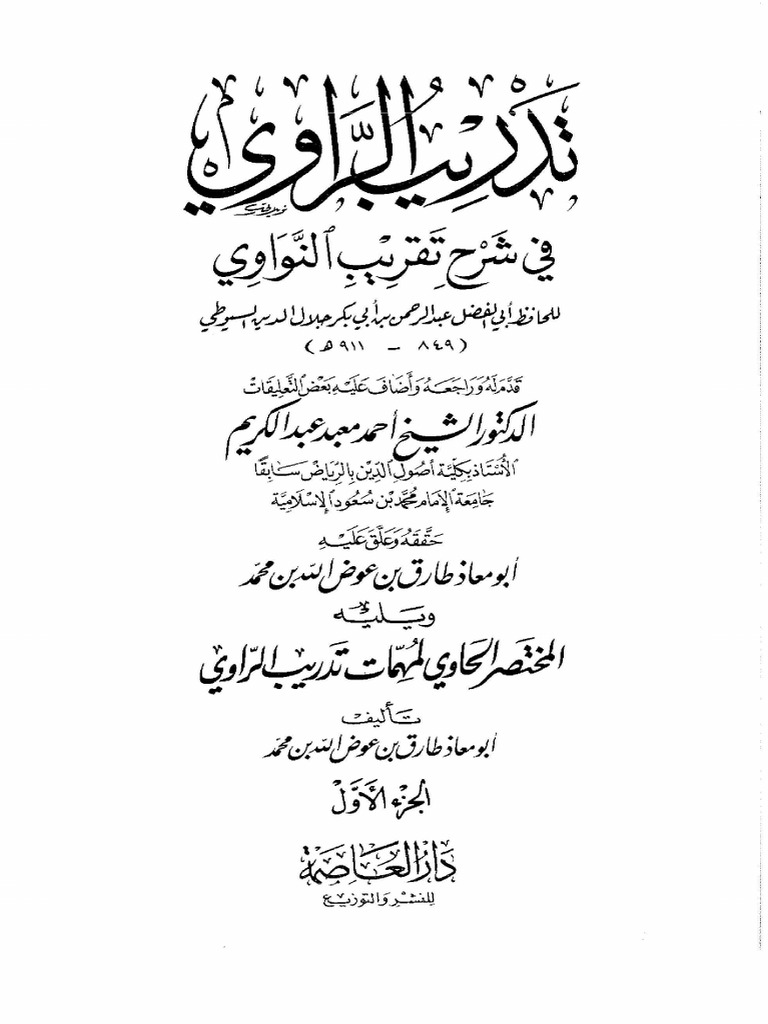 تَدْرِيبُ الرَّاوِي
فِي شَرْحِ تَقْرِيبِ النَّوَاوِي
للحافظ أبي الفضل عبد الرحمن بن أبي بكر جلال الدين السيوطي
(٨٤٩ - ٩١١ هـ)
قَدَّمَ لَهُ وَرَاجَعَهُ وَأَضَافَ عَلَيْهِ بَعْضَ التَّعْلِيقَاتِ
الدكتور الشيخ أحمد معبد عبد الكريم
الأُسْتَاذ بِكُلِيَّة أُصُول الدِّين بِالرِّيَاضِ سَابِقًا
جَامِعَة الإِمَام مُحَمَّد بْن سُعُود الإِسْلَامِيَّة
حَقَّقَهُ وَعَلَّقَ عَلَيْهِ
أبو معاذ طارق بن عوض الله بن محمد
ويليه
المختصر الحاوي لمُهِمَّات تَدْريب الرّاوي
تأليف
أبو معاذ طارق بن عوض الله بن محمد
الجزء الأَوَّلْ
دَارُ العَاصِمَة
للنشر والتوزيع